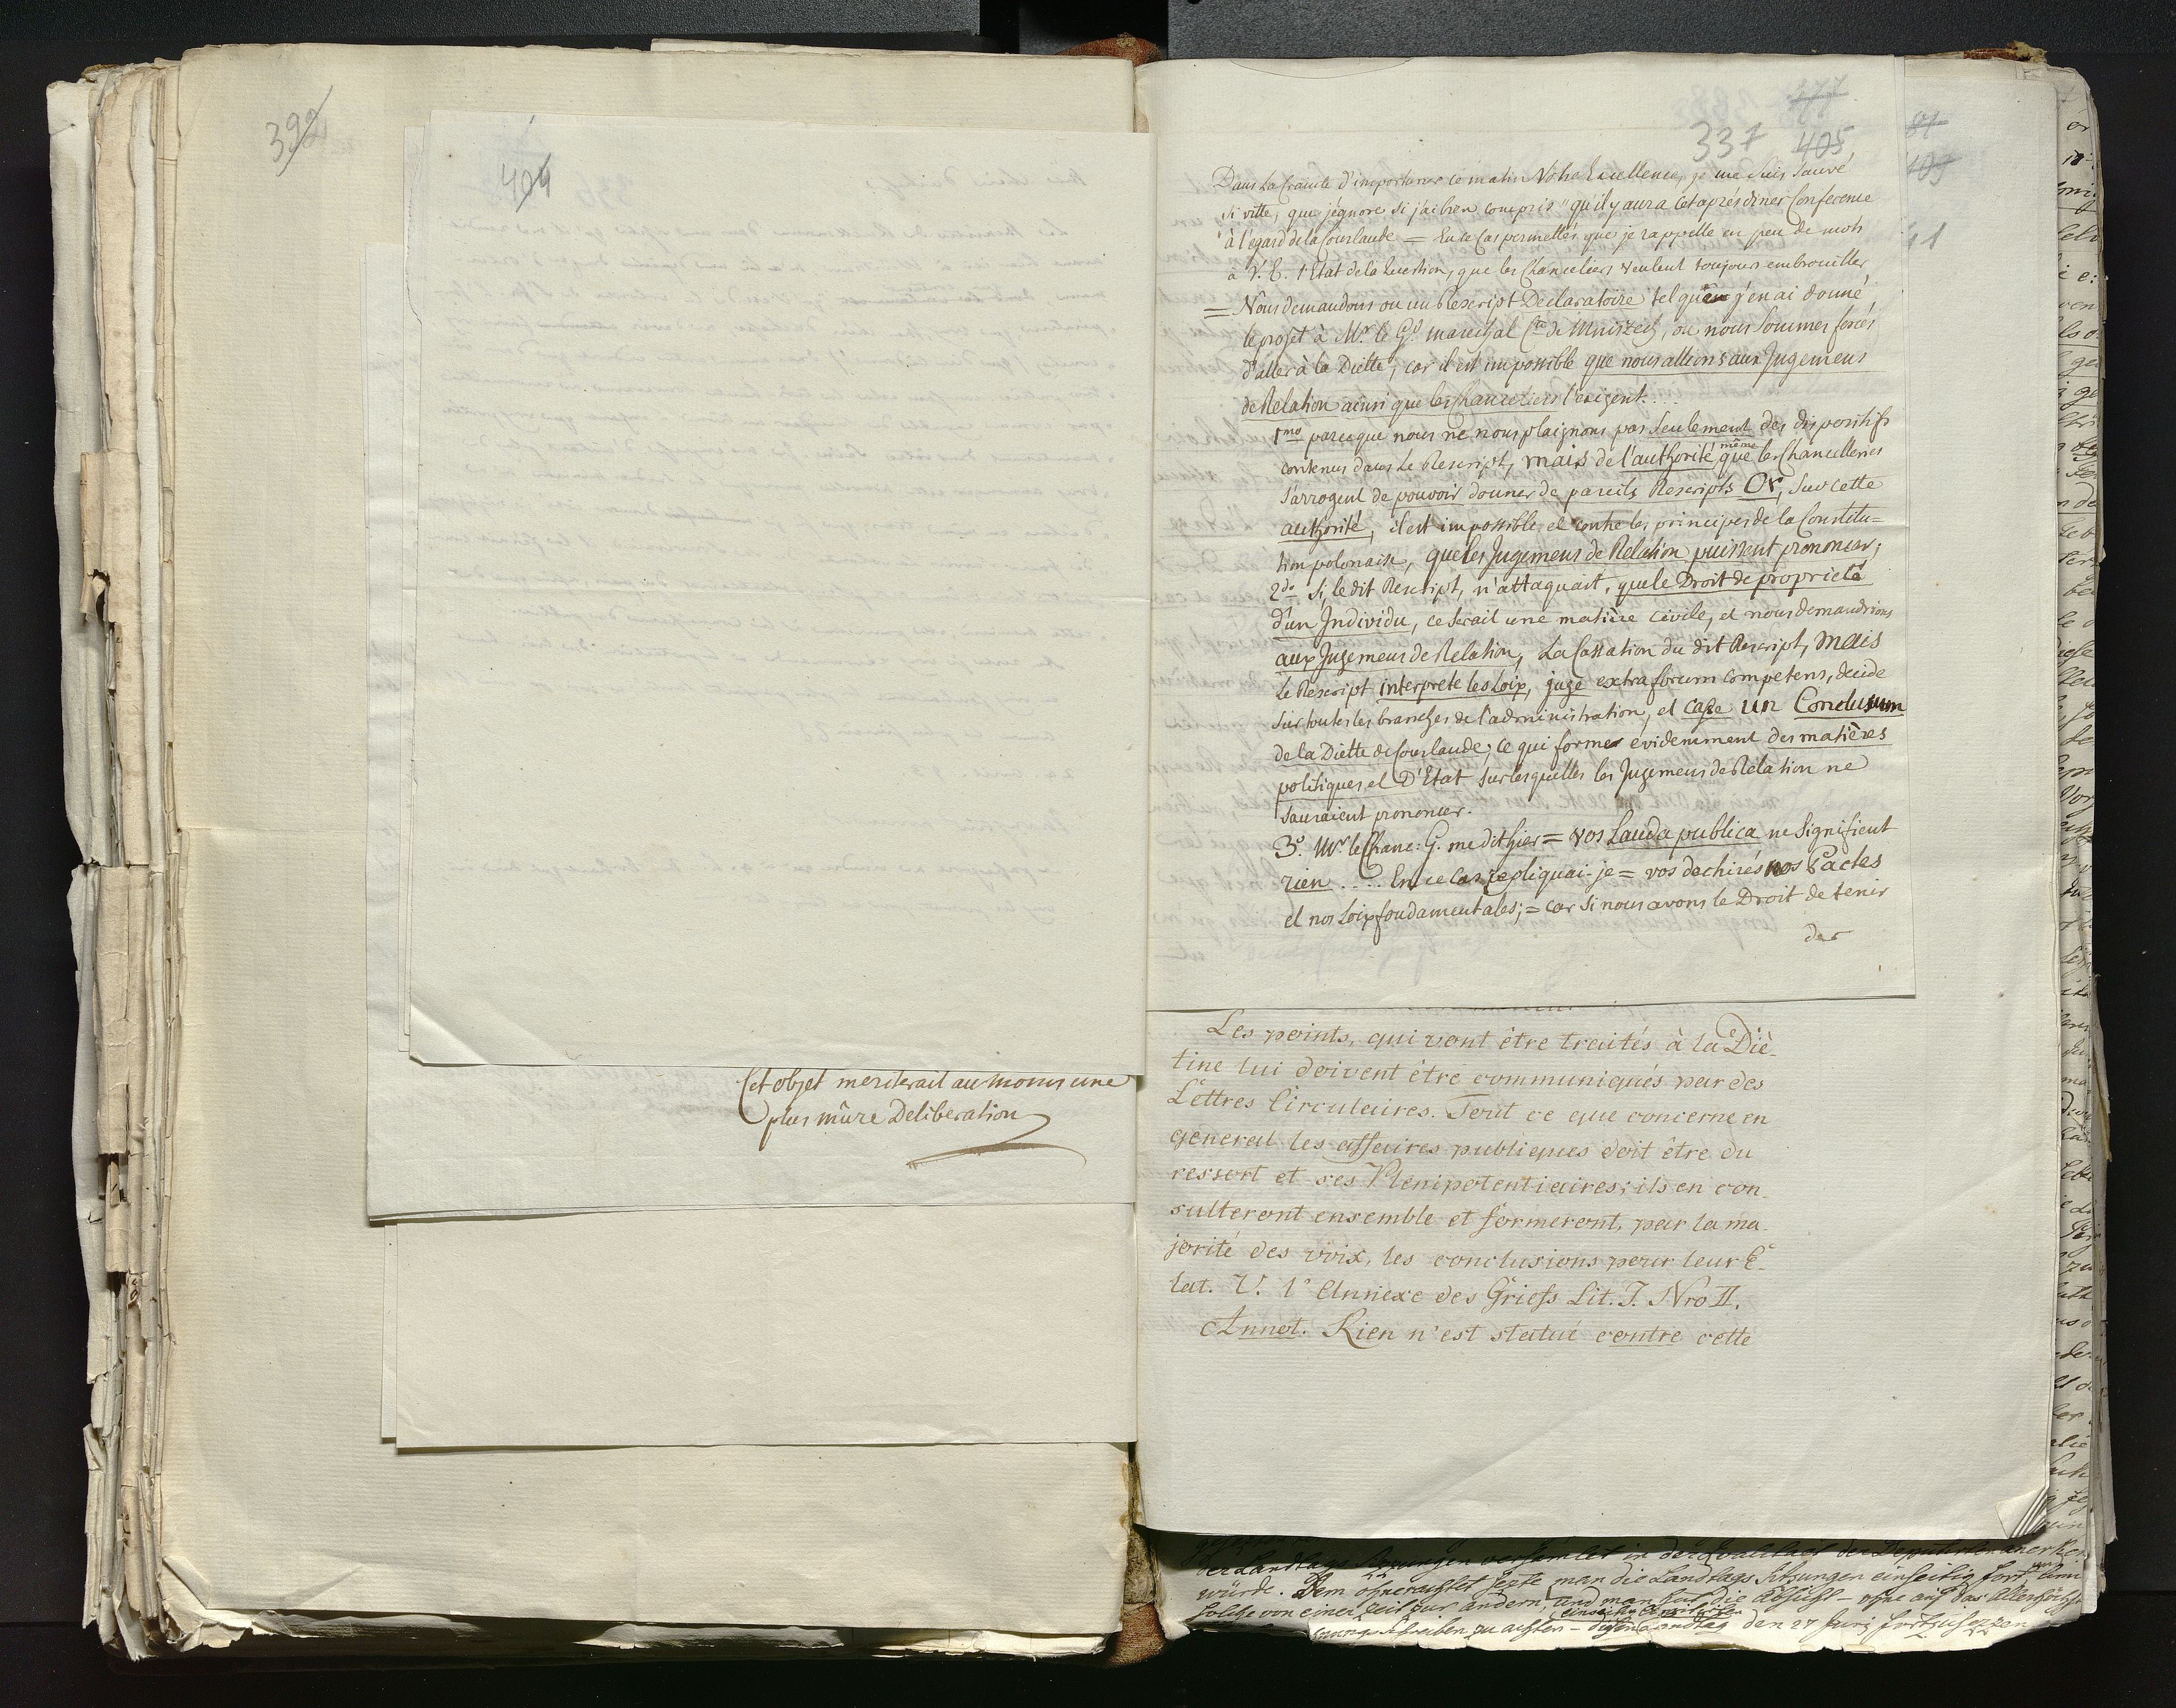 392
404
Cet objet meriterait au moins une
plus mûre Deliberation
177
337 405
Dans la Crainte d'importuner ce matin Votre Excellence, je me suis sauvé
si vitte, que j'ignore si j'ai bien compris "qu'il y aura cet après diner Conference
"à l'egard de la Courlande = En ce Cas permettés que je rappelle en peu de mots
à V. E. l'Etat de la Question, que les Chanceliers veulent toujours embrouiller,
= Nous demandons ou un Rescript Declaratoire tel que j'en ai donné
le projet à Mr. le Gd. marechal Cte de Mniszech, ou nous sommes forcés
d'aller à la Diette, car il est impossible que nous allions aux Jugemens
de Relation ainsi que les Chanceliers l'exigent....
1mo parceque nous ne nous plaignons pas seulement des dispositifs
contenus dans le Rescript, mais de l'authorité même que les Chancelleries
s'arrogent de pouvoir donner de pareils Rescripts Or, sur cette
authorité, il est impossible et contre les principes de la Constitu=
tion polonaise, que les Jugemens de Relation puissent prononcer;
2do Si le dit Rescript, n'attaquait, que le Droit de proprieté
d'un Individu, ce serait une matière civile, et nous demandrions
aux Jugemens de Relation, la Cassation du dit Rescript, mais
le Rescript interprete les Loix, juge extra forum competens, decide
sur toutes les branches de l'administration, et casse un Conclusum
de la Diette de Courlande; ce qui forme évidemment des matières
politiques et D'Etat sur lesquelles les Jugemens de Relation ne
sauraient prononcer.
3o. Mr. le Chanc: G. me dit hier = vos Lauda publica ne signifient
rien .... En ce Cas repliquai-je = vos dechirés nos Pactes
et nos Loix fondamentales; = car si nous avons le Droit de tenir
des
Les points, qui vont être traités à la Diè-
tine lui doivent être communiqués par des
Lettres Circulaires. Tout ce que concerne en
general les affaires publiques doit être du
ressort et ses Plenipotentiaires; ils en con-
sulteront ensemble et formeront, par la ma-
jorité des voix, les conclusions pour leur E-
tat. V. l'Annexe des Griefs Lit. J. Nro II.
Annot. Rien n'est statué contre cette
der Landtags versamlet in der Qualitaet der Deputirten anerken
würde. Dem ohnerachtet sezte man die Landtags Sitzungen einseitig fort,
solche von einer Zeit zur andern, und man hat die Absicht - ohne auf das Allerhöchste
schreiben zu achten - diesen Landtag den 27 Junj fortzusezzen